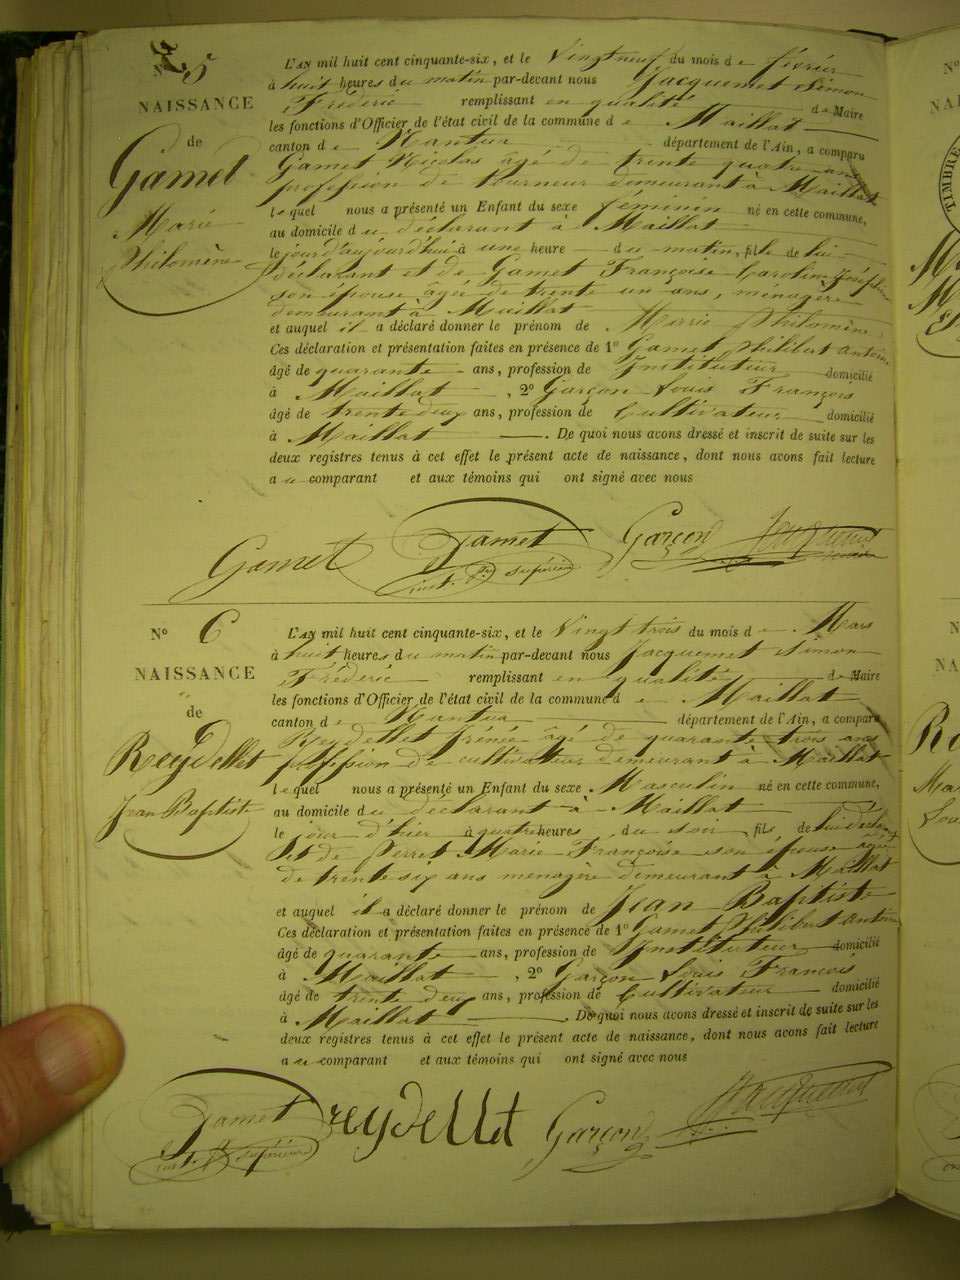 N° 5
NAISSANCE
de
Gamet
Marie
Philomène
L'AN mil huit cent cinquante-six, et le Vingt neuf du mois de février
à huit heures du matin par-devant nous Jacquemet Simon
Fréderic remplissant en qualité de Maire
les fonctions d'Officier de l'état civil de la commune de Maillat
canton de Nantua département de l'Ain, a comparu
Gamet Nicolas âgé de trente quatre ans
profession de Tourneur demeurant à Maillat
lequel nous a présenté un Enfant du sexe féminin né en cette commune,
au domicile du déclarant à Maillat
le jour d'aujourd'hui à une heure du matin, fille de lui
déclarant et de Gamet Françoise Caroline Joséphine
son épouse âgée de trente un ans, ménagère
demeurant à Maillat
et auquel il a déclaré donner le prénom de Marie Philomène
Ces déclaration et présentation faites en présence de 1° Gamet Philibert Antoine
âgé de quarante ans, profession de Instituteur domicilié
à Maillat , 2° Garçon Louis François
âgé de trente deux ans, profession de Cultivateur domicilié
à Maillat . De quoi nous avons dressé et inscrit de suite sur les
deux registres tenus à cet effet le présent acte de naissance, dont nous avons fait lecture
au comparant et aux témoins qui ont signé avec nous
Gamet Gamet Garçon Jacquemet
inst. supérieur
N° 6
NAISSANCE
de
Reydellet
Jean Baptiste
L'AN mil huit cent cinquante-six, et le Vingt trois du mois de Mars
à huit heures du matin par-devant nous Jacquemet Simon
Fréderic remplissant en qualité de Maire
les fonctions d'Officier de l'état civil de la commune de Maillat
canton de Nantua département de l'Ain, a comparu
Reydellet Irénée âgé de quarante trois ans
profession de cultivateur demeurant à Maillat
lequel nous a présenté un Enfant du sexe Masculin né en cette commune,
au domicile du déclarant à Maillat
le jour d'hier à quatre heures du soir, fils de lui déclant
et de Perret Marie Françoise son épouse âgée
de trente six ans ménagère demeurant à Maillat
et auquel il a déclaré donner le prénom de Jean Baptiste
Ces déclaration et présentation faites en présence de 1° Gamet Philibert Antoine
âgé de quarante ans, profession de Instituteur domicilié
à Maillat , 2° Garçon Louis François
âgé de trente deux ans, profession de Cultivateur domicilié
à Maillat . De quoi nous avons dressé et inscrit de suite sur les
deux registres tenus à cet effet le présent acte de naissance, dont nous avons fait lecture
au comparant et aux témoins qui ont signé avec nous
Gamet reydellet Garçon Jacquemet
inst. supérieur
TIMBRE